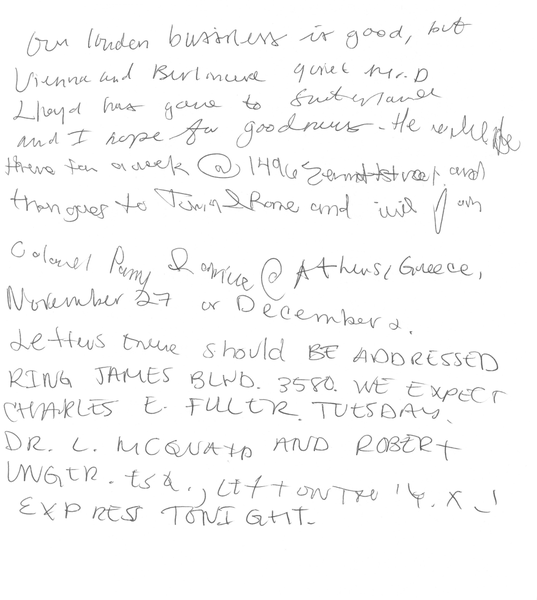 Our london business is good, but
Vienna and Berlin are quiet Mr. D
Lloyd has gone to Switzerland
and I hope for good news. He will be
there for a week @ 1496 Zermott street and
then goes to Turin & Rome and will join
Colonel Parry & arrive @ Athens, Greece,
November 27 or December 2.
Letters there should BE ADDRESSED
KING JAMES BLVD. 3580. WE EXPECT
CHARLES E. FULLER. TUESDAY.
DR. L. MCQUAID AND ROBERT
UNGER. Esq., LEFT ON THE 'Y. X.'
EXPRESS TONIGHT.